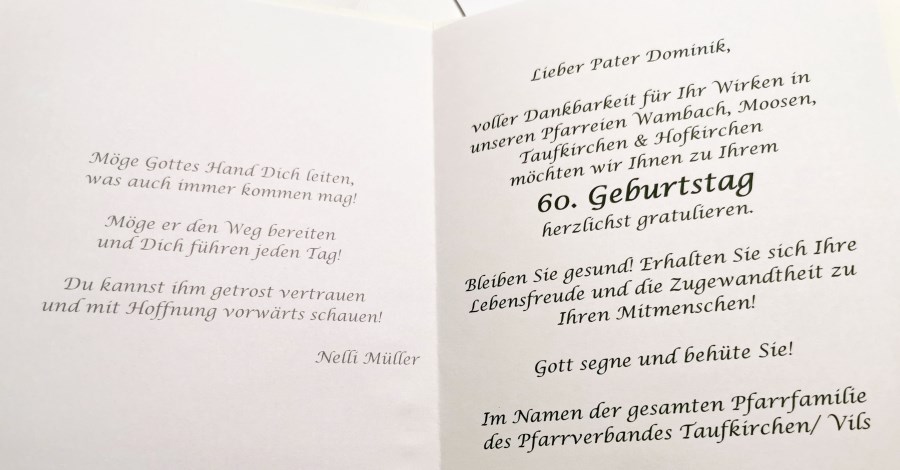 Möge Gottes Hand Dich leiten,
was auch immer kommen mag!
Möge er den Weg bereiten
und Dich führen jeden Tag!
Du kannst ihm getrost vertrauen
und mit Hoffnung vorwärts schauen!
Nelli Müller
Lieber Pater Dominik,
voller Dankbarkeit für Ihr Wirken in
unseren Pfarreien Wambach, Moosen,
Taufkirchen & Hofkirchen
möchten wir Ihnen zu Ihrem
60. Geburtstag
herzlichst gratulieren.
Bleiben Sie gesund! Erhalten Sie sich Ihre
Lebensfreude und die Zugewandtheit zu
Ihren Mitmenschen!
Gott segne und behüte Sie!
Im Namen der gesamten Pfarrfamilie
des Pfarrverbandes Taufkirchen/ Vils